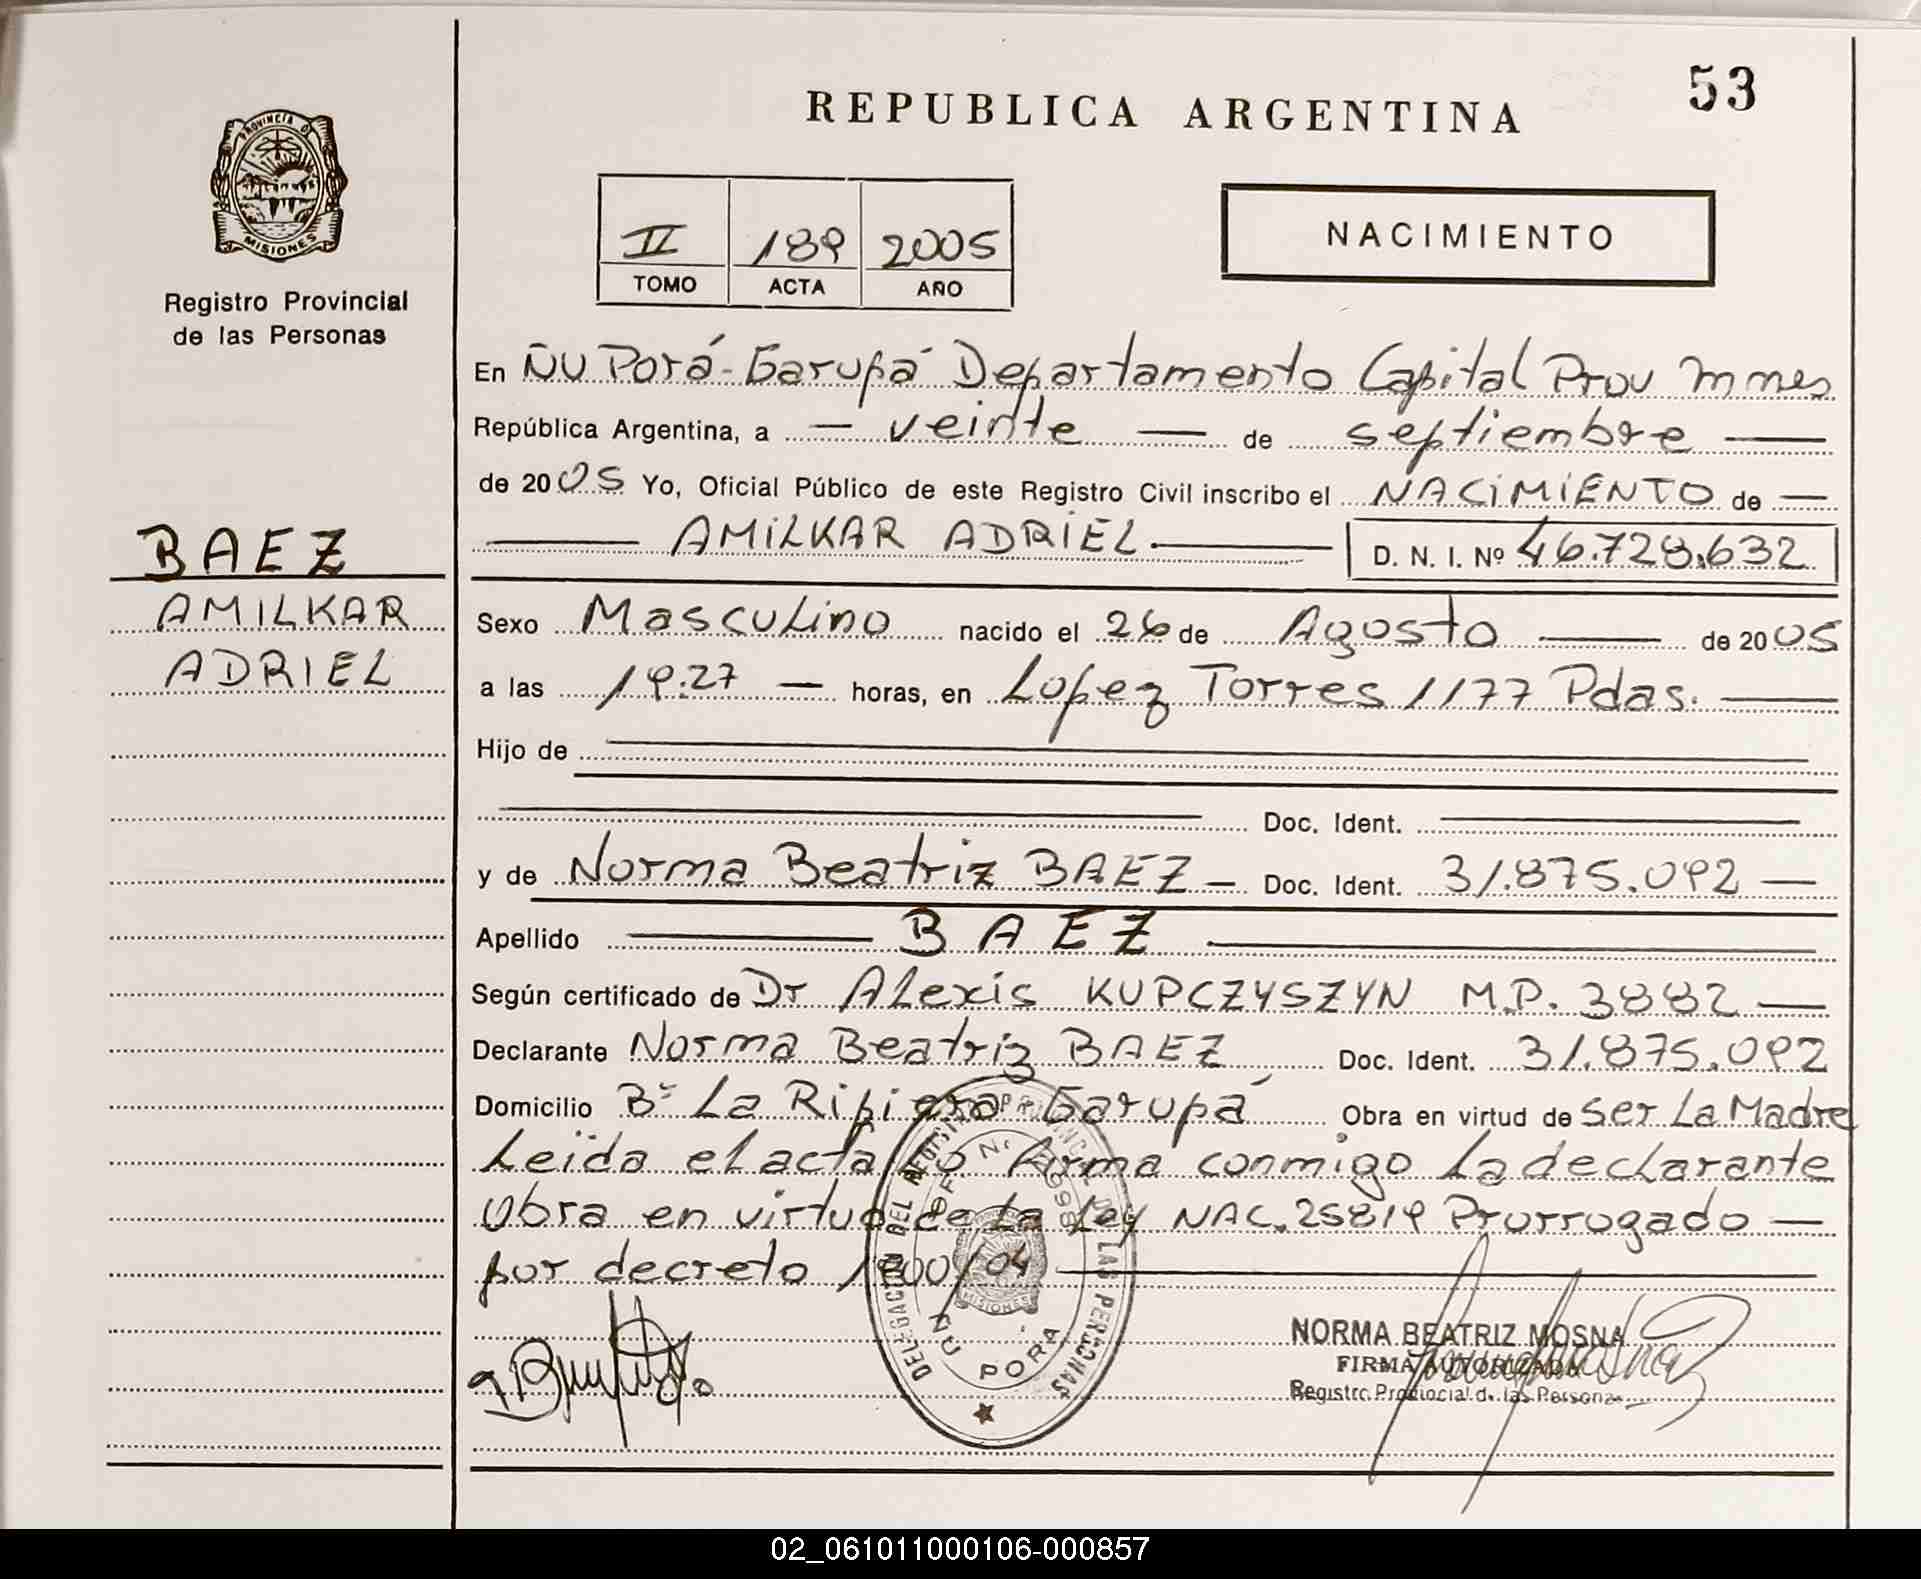 53
REPUBLICA ARGENTINA
PROVINCIA DE
MISIONES
Registro Provincial
de las Personas
II 189 2005
TOMO ACTA AÑO
NACIMIENTO
En Ñu Porá - Garupá Departamento Capital Prov Mnes
República Argentina, a — veinte — de septiembre —
de 2005 Yo, Oficial Público de este Registro Civil inscribo el NACIMIENTO de —
— AMILKAR ADRIEL — D. N. I. Nº 46.728.632
BAEZ
AMILKAR
ADRIEL
Sexo Masculino nacido el 26 de Agosto — de 2005
a las 19:27 — horas, en Lopez Torres 1177 Pdas. —
Hijo de
Doc. Ident.
y de Norma Beatriz BAEZ — Doc. Ident. 31.875.092 —
Apellido — BAEZ —
Según certificado de Dr Alexis KUPCZYSZYN M.P. 3882 —
Declarante Norma Beatriz BAEZ Doc. Ident. 31.875.092
Domicilio Bº La Ribiera Garupá Obra en virtud de Ser La Madre
Leida el acta La Firma conmigo La declarante
Obra en virtud de La Ley NAC. 25819 Prorrogado —
por decreto 1800/04 —
DELEGACION DEL REGISTRO PROVINCIAL DE LAS PERSONAS
OF. Nº
MISIONES
ÑU PORA
NORMA BEATRIZ MOSNA
FIRMA AUTORIZADA
Registro Provincial de las Personas
02_061011000106-000857